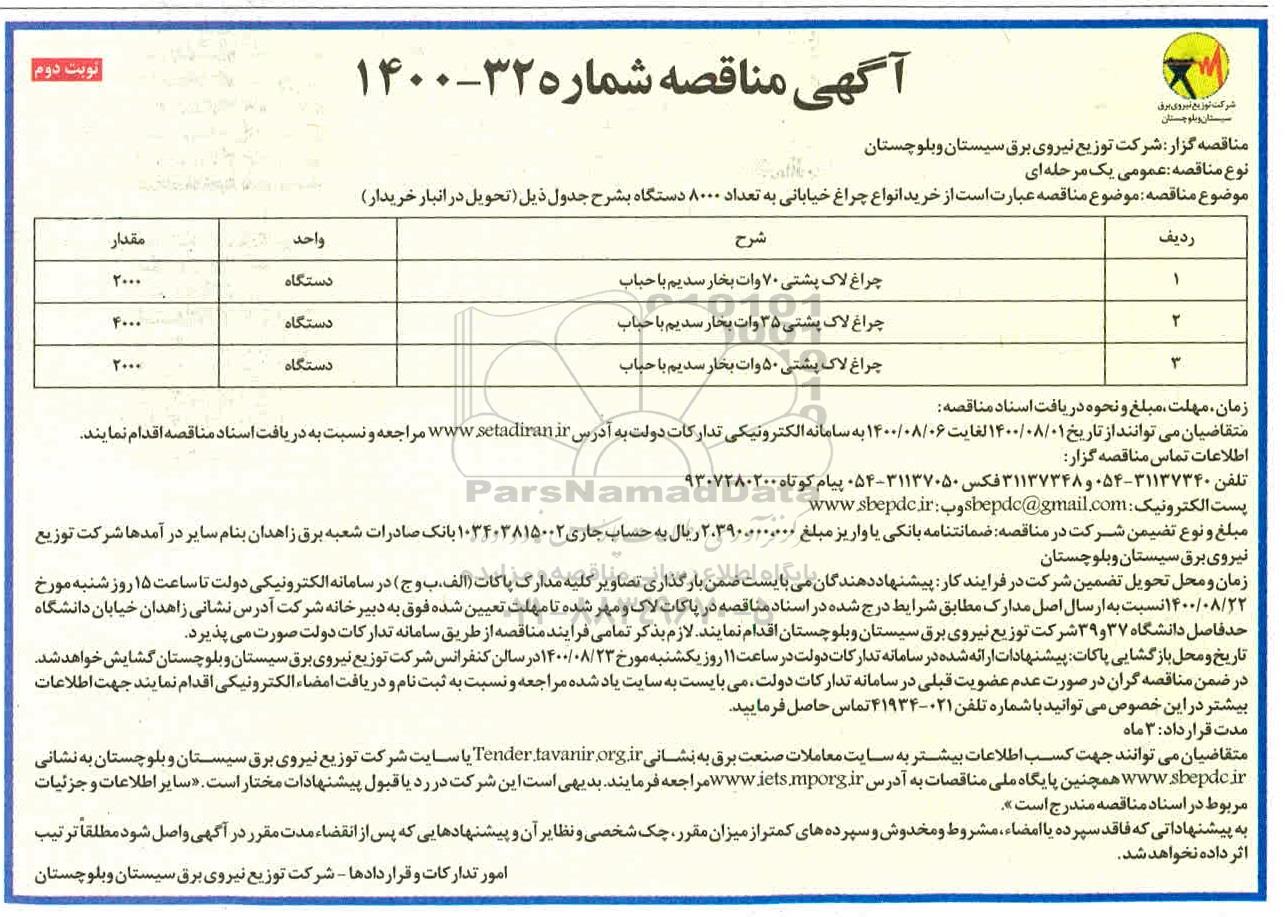 آگهی مناقصه شماره ۳۲-۱۴۰۰
نوبت دوم
شرکت توزیع نیروی برق
سیستان وبلوچستان
مناقصه گزار: شرکت توزیع نیروی برق سیستان وبلوچستان
نوع مناقصه: عمومی یک مرحله ای
موضوع مناقصه: موضوع مناقصه عبارت است از خرید انواع چراغ خیابانی به تعداد ۸۰۰۰ دستگاه بشرح جدول ذیل (تحویل در انبار خریدار)
ردیف شرح واحد مقدار
۱ چراغ لاک پشتی ۷۰ وات بخار سدیم با حباب دستگاه ۲۰۰۰
۲ چراغ لاک پشتی ۳۵ وات بخار سدیم با حباب دستگاه ۴۰۰۰
۳ چراغ لاک پشتی ۵۰ وات بخار سدیم با حباب دستگاه ۲۰۰۰
زمان، مهلت، مبلغ و نحوه دریافت اسناد مناقصه:
متقاضیان می توانند از تاریخ ۱۴۰۰/۰۸/۰۱ لغایت ۱۴۰۰/۰۸/۰۶ به سامانه الکترونیکی تدارکات دولت به آدرس www.setadiran.ir مراجعه و نسبت به دریافت اسناد مناقصه اقدام نمایند.
اطلاعات تماس مناقصه گزار:
تلفن ۳۱۱۳۷۳۴۰-۰۵۴ و ۳۱۱۳۷۳۴۸ فکس ۳۱۱۳۷۰۵۰-۰۵۴ پیام کوتاه ۹۳۰۷۲۸۰۲۰۰
پست الکترونیک: sbepdc@gmail.com وب: www.sbepdc.ir
مبلغ و نوع تضمین شرکت در مناقصه: ضمانتنامه بانکی یا واریز مبلغ ۲.۳۹۰.۰۰۰.۰۰۰ ریال به حساب جاری ۱۰۳۴۰۳۸۱۵۰۰۲ بانک صادرات شعبه برق زاهدان بنام سایر درآمدها شرکت توزیع
نیروی برق سیستان وبلوچستان
زمان و محل تحویل تضمین شرکت در فرایند کار: پیشنهاد دهندگان می بایست ضمن بارگذاری تصاویر کلیه مدارک پاکات (الف، ب و ج) در سامانه الکترونیکی دولت تا ساعت ۱۵ روز شنبه مورخ
۱۴۰۰/۰۸/۲۲ نسبت به ارسال اصل مدارک مطابق شرایط درج شده در اسناد مناقصه در پاکات لاک و مهر شده تا مهلت تعیین شده فوق به دبیرخانه شرکت آدرس نشانی زاهدان خیابان دانشگاه
حدفاصل دانشگاه ۳۷ و ۳۹ شرکت توزیع نیروی برق سیستان وبلوچستان اقدام نمایند. لازم بذکر تمامی فرآیند مناقصه از طریق سامانه تدارکات دولت صورت می پذیرد.
تاریخ و محل بازگشایی پاکات: پیشنهادات ارائه شده در سامانه تدارکات دولت در ساعت ۱۱ روز یکشنبه مورخ ۱۴۰۰/۰۸/۲۳ در سالن کنفرانس شرکت توزیع نیروی برق سیستان وبلوچستان گشایش خواهد شد.
در ضمن مناقصه گران در صورت عدم عضویت قبلی در سامانه تدارکات دولت، می بایست به سایت یاد شده مراجعه و نسبت به ثبت نام و دریافت امضاء الکترونیکی اقدام نمایند جهت اطلاعات
بیشتر در این خصوص می توانید با شماره تلفن ۰۲۱-۴۱۹۳۴ تماس حاصل فرمایید.
مدت قرارداد: ۳ ماه
متقاضیان می توانند جهت کسب اطلاعات بیشتر به سایت معاملات صنعت برق به نشانی Tender.tavanir.org.ir یا سایت شرکت توزیع نیروی برق سیستان و بلوچستان به نشانی
www.sbepdc.ir همچنین پایگاه ملی مناقصات به آدرس www.iets.mporg.ir مراجعه فرمایند. بدیهی است این شرکت در رد یا قبول پیشنهادات مختار است. «سایر اطلاعات و جزئیات
مربوط در اسناد مناقصه مندرج است».
به پیشنهاداتی که فاقد سپرده یا امضاء، مشروط و مخدوش و سپرده های کمتر از میزان مقرر، چک شخصی و نظایر آن و پیشنهادهایی که پس از انقضاء مدت مقرر در آگهی واصل شود مطلقاً ترتیب
اثر داده نخواهد شد.
امور تدارکات و قراردادها - شرکت توزیع نیروی برق سیستان وبلوچستان
ParsNamadData
پایگاه اطلاع رسانی مناقصه و مزایده
۰۲۱-۸۸۳۴۹۶۷۰-۵